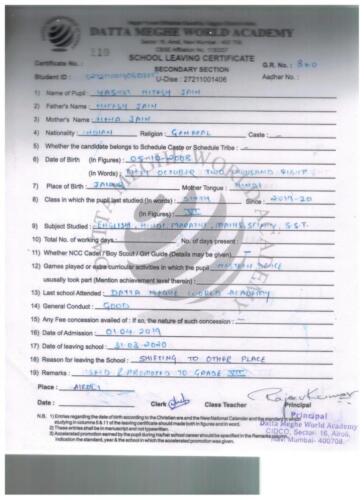 DATTA MEGHE WORLD ACADEMY
Sector 16, Airoli, Navi Mumbai - 400 708.
CBSE Affiliation No.: 1130337
SCHOOL LEAVING CERTIFICATE
Certificate No. : 110
SECONDARY SECTION
G.R. No. : 840
Student ID :
U-Dise : 27211001406
Aadhar No. :
1) Name of Pupil : HITESH JAIN
2) Father's Name : HITESH JAIN
3) Mother's Name : JAIN
4) Nationality : INDIAN Religion : GENERAL Caste : -
5) Whether the candidate belongs to Schedule Caste or Schedule Tribe : -
6) Date of Birth (In Figures) : 05-10-2008
(In Words) : OCTOBER TWO THOUSAND EIGHT
7) Place of Birth : Mother Tongue : HINDI
8) Class in which the pupil last studied (In words) : SIXTH Since : 2019-20
(In Figures) : VI
9) Subject Studied : ENGLISH, HINDI, MARATHI, MATHS, SCI, S.S.T.
10) Total No. of working days : No. of days present :
11) Whether NCC Cadet / Boy Scout / Girl Guide (Details may be given) : -
12) Games played or extra curricular activities in which the pupil
usually took part (Mention achievement level therein) :
13) Last school Attended : DATTA MEGHE WORLD ACADEMY
14) General Conduct : GOOD
15) Any Fee concession availed of : If so, the nature of such concession : -
16) Date of Admission : 01.04.2019
17) Date of leaving school : 31-03-2020
18) Reason for leaving the School : SHIFTING TO OTHER PLACE
19) Remarks : PROMOTED TO GRADE VII
Place : AIROLI
Date : Clerk Class Teacher Principal
Principal
Datta Meghe World Academy
CIDCO, Sector: 16, Airoli,
Navi Mumbai- 400708.
N.B. 1) Entries regarding the date of birth according to the Christian era and the New National Calendar and the standard in which
studying in columns 6 & 11 of the leaving certificate should be made both in figures and in word.
2) These entries shall be in manuscript and not typewritten.
3) Accelerated promotion earned by the pupil during his/her school career should be specified in the Remarks column,
indication the standard, year & the school in which the accelerated promotion was given.
DATTA MEGHE WORLD ACADEMY